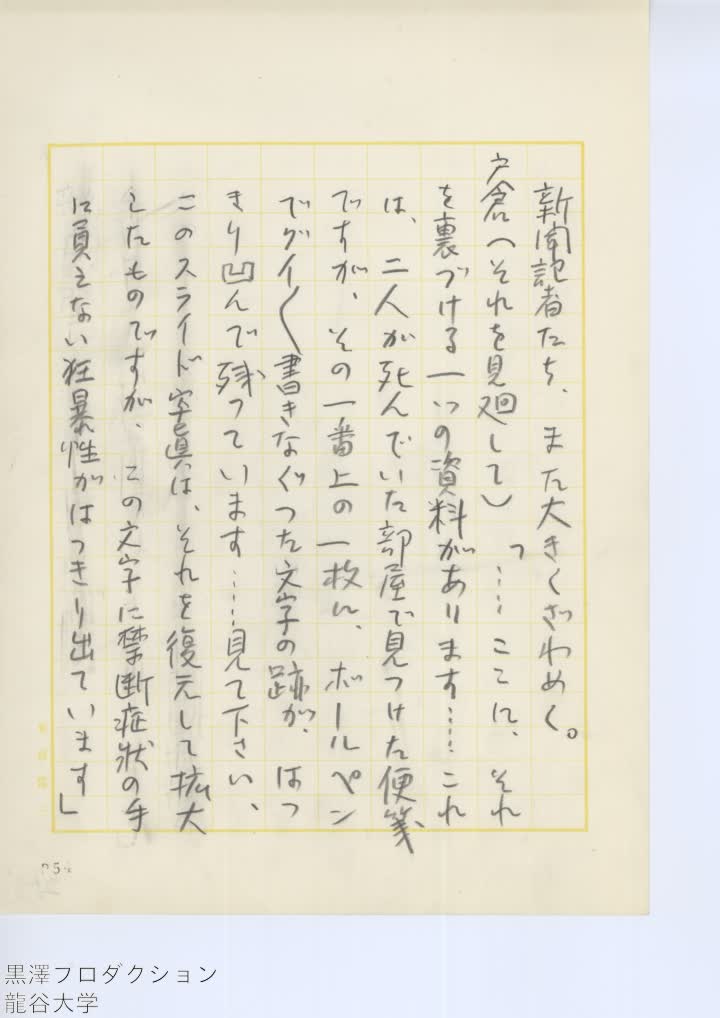 新聞記者たち、また大きくざわめく。
戸倉（それを見廻して）「……ここに、それ
を裏づける一つの資料があります……これ
は、二人が死んでいた部屋で見つけた便箋
ですが、その一番上の一枚に、ボールペン
でグイ〱書きなぐつた文字の跡が、はつ
きり凹んで残つています……見て下さい、
このスライド写真は、それを復元して拡大
したものですが、この文字に禁断症状の手
に負えない狂暴性がはつきり出ています」
黒澤プロダクション
龍谷大学